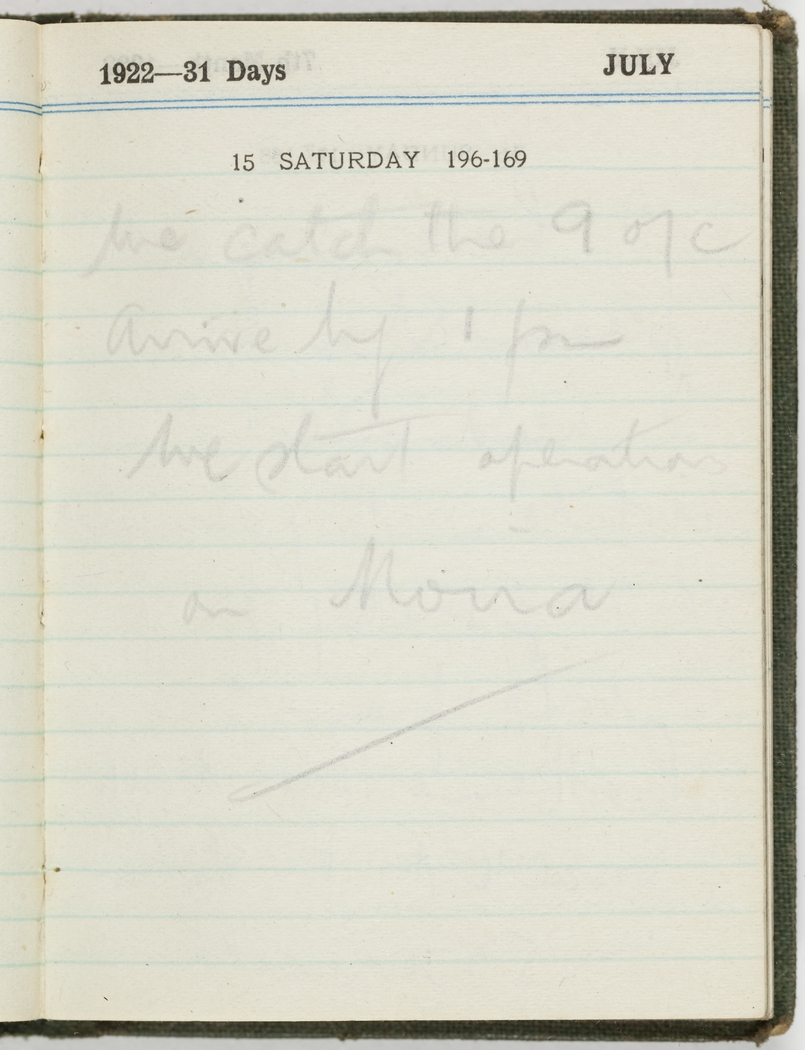 1922—31 Days JULY
15 SATURDAY 196-169
We catch the 9 o/c
Arrive by 1 pm
We start operations
on Mona